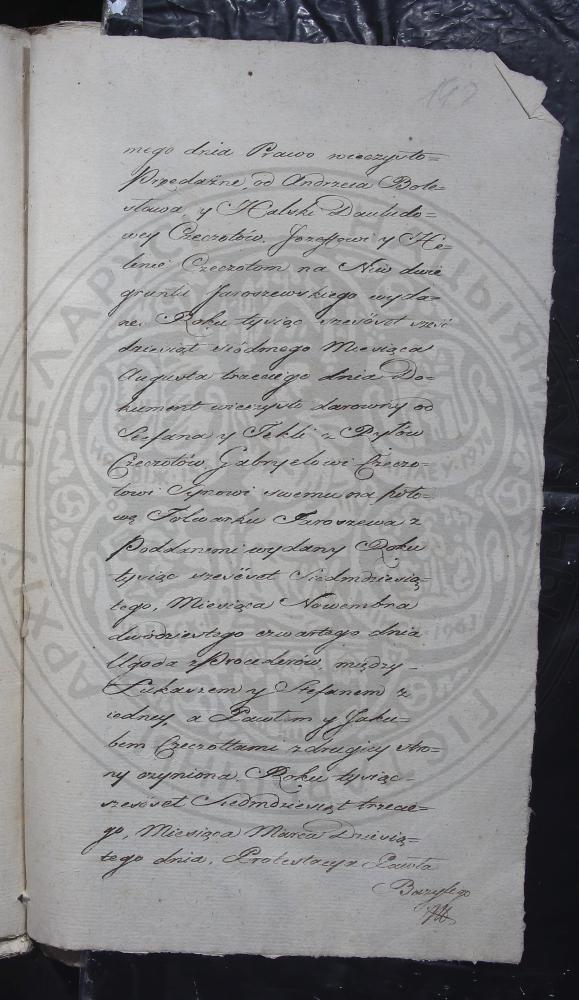 117
mego dnia Prawo wieczysto=
Przedażne, od Andrzeia Bole=
sława y Halski Dawido=
wey Czeczotów. Jozeffowi y He=
lenie Czeczotom na Niw dwie
gruntu Jaroszewskiego wyda=
ne. Roku tysiąc szesćset sześć
dziesiąt siódmego Miesiąca
Augusta trzeciego dnia Do=
kument wieczysto darowny od
Stefana y Tekli z Ryłów
Czeczotów Gabryelowi Czeczo=
towi Synowi swemu na poło=
wę Folwarku Jaroszewa z
Poddanemi wydany Roku
tysiąc szesćset Siedmdziesią=
tego, Miesiąca Nowembra
dwódziestego czwartego dnia
Ugoda z Procederów, między
Łukaszem y Stefanem z
iedney, a Pawłem y Jaku=
bem Czeczottami z drugiey stro=
ny czyniona. Roku tysiąc
szesćset Siedmdziesiąt trzecie=
go, Miesiąca Marca Dziesią=
tego dnia, Protestacya Pawła
Bazylego